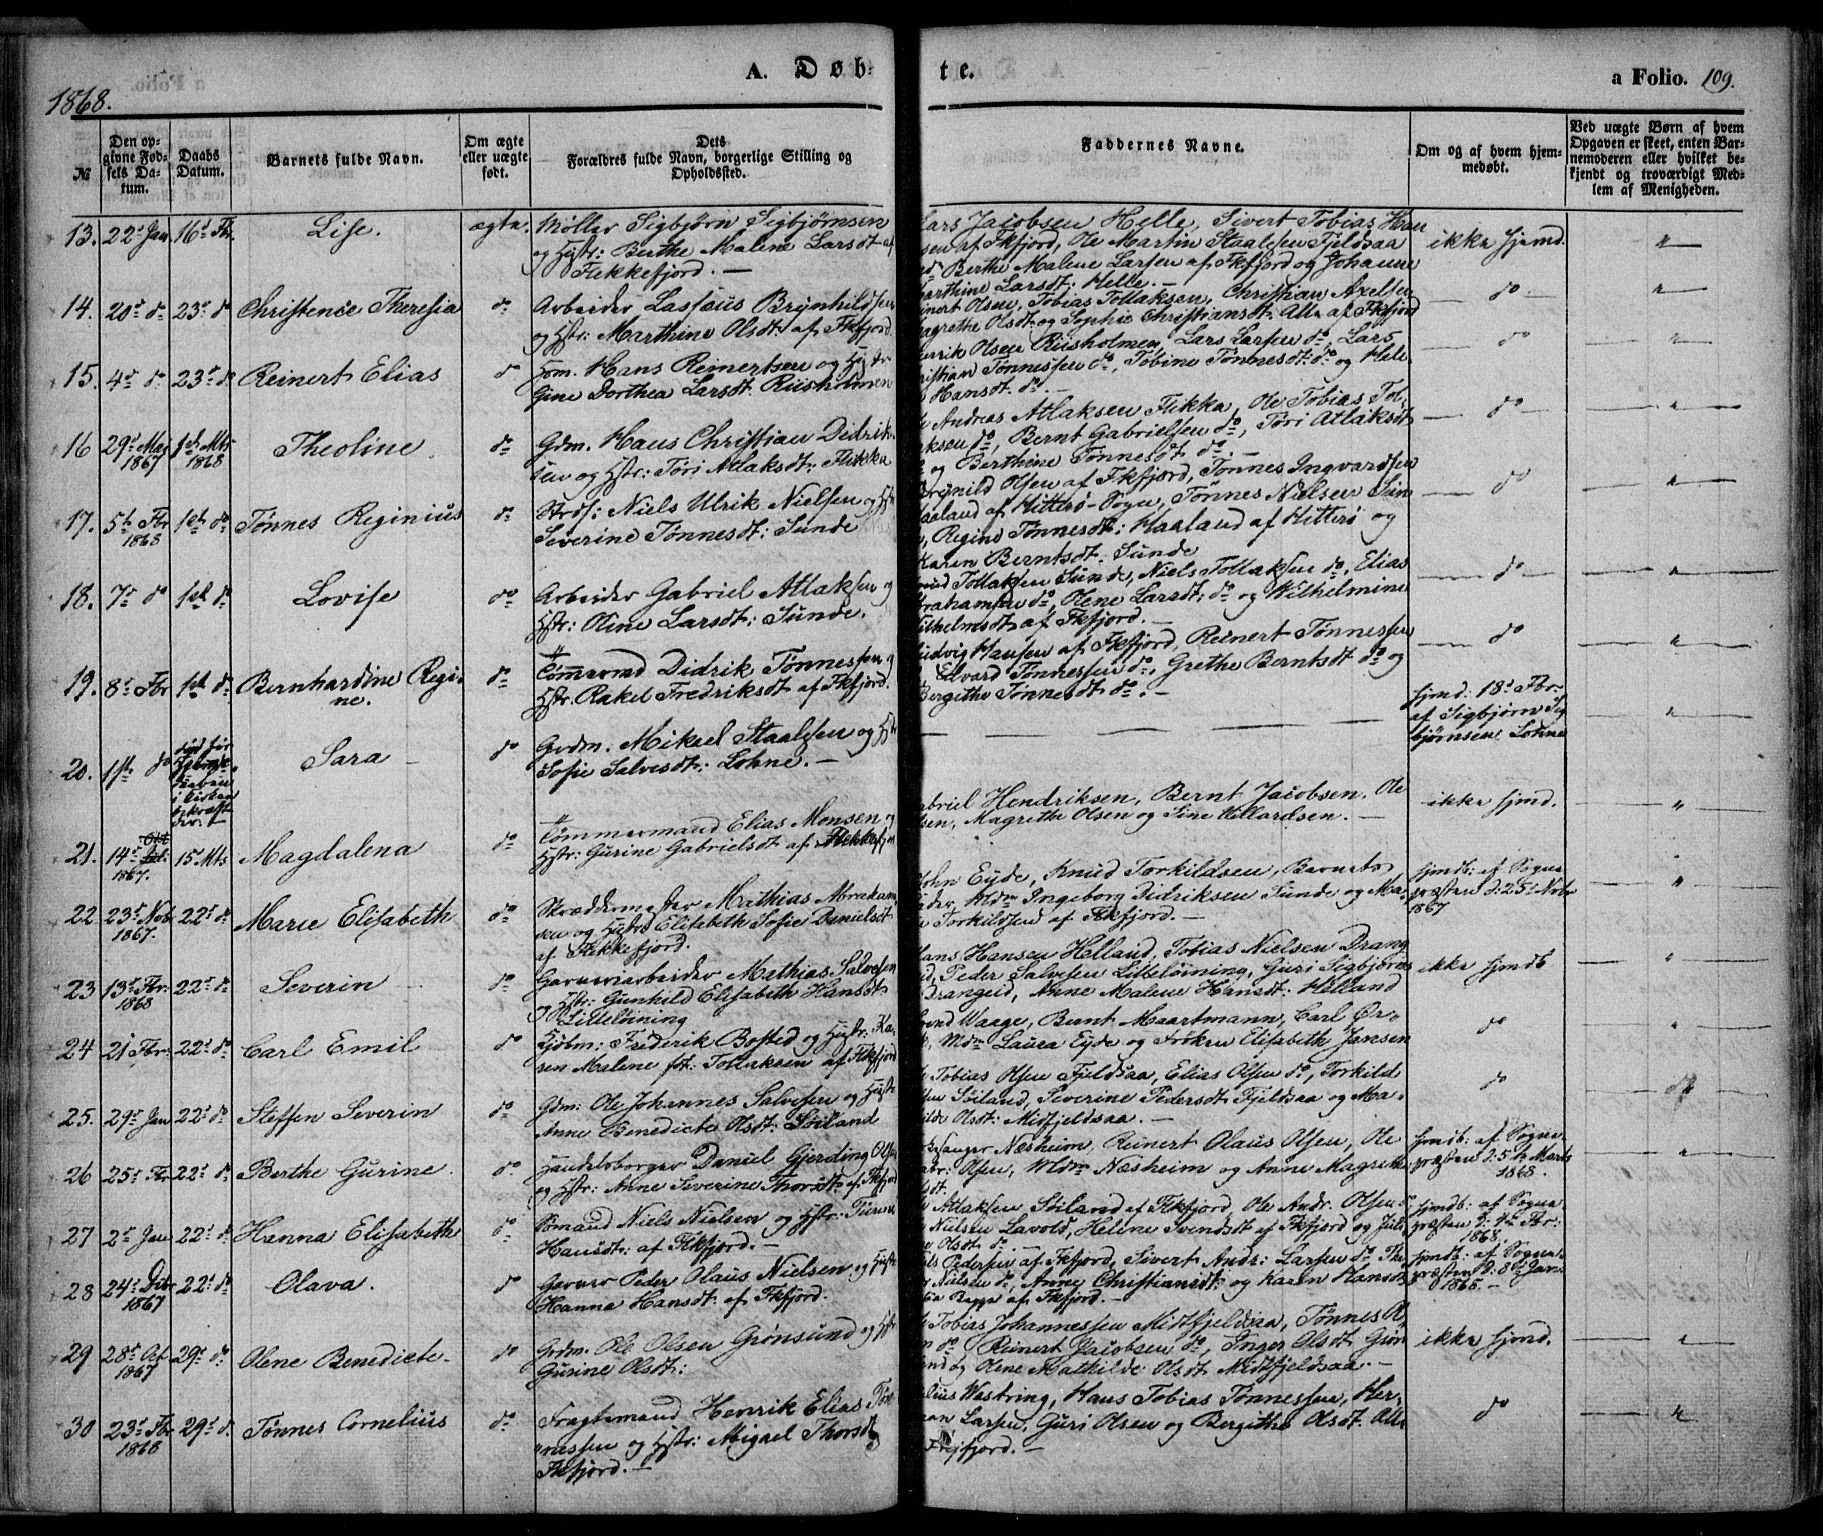 1868.
A. Døb-
te.
a Folio. 109.
№
Den op-
givne Fød-
sels Da-
tum.
Daabs
Datum.
Barnets fulde Navn.
Om ægte
eller uægte
født.
Dets
Forældres fulde Navn, borgerlige Stilling og
Opholdssted.
Faddernes Navne.
Om og af hvem hjem-
medøbt.
Ved uægte Børn af hvem
Opgaven er skeet, enten Bar-
nemoderen eller hvilket be-
kjendt og troværdigt Med-
lem af Menigheden.
13. 22 Jan 16 Fbr. Lise. ægte. Møller Sigbjørn Sigbjørnsen
og Hstr: Berthe Malene Larsdt af
Flekkefjord. —
Lars Jacobsen Helle, Sivert Tobias Han
sen af Fkfjord, Ole Martin Staalesen Fjeldsaa
Berthe Malene Larsen af Fkfjord og Johanne
Marthine Larsdt: Helle. —
ikke hjmd.
14. 20 do 23 do Christence Theresia do Arbeider Lassæus Brynhildsen
og Hstr: Marthine Olsdt af Fkfjord
Reinert Olsen, Tobias Tollaksen, Christian Axelsen
Magrethe Olsdt og Sophie Christiansdt. Alle af Fkfjord
do
15. 4 do 23 do Reinert Elias do Hans Reinertsen og Hstr
Gine Dorthea Larsdt. Riisholmen
Henrik Olsen Riisholmen, Lars Larsen do, Lars
Christian Tønnessen do, Tobine Tønnesdt: do og Hele
Hansdt. do. —
do
16 29 Mai 1867 1ste Mts 1868 Theoline do Gdm. Hans Christian Didrik-
sen og Hstr: Tori Atlaksdt: Flikka
Andreas Atlaksen Flikka, Ole Tobias Tol-
laksen do, Bernt Gabrielsen do, Tori Atlaksdt
og Berthine Tønnesdt do. —
do
17. 5te Fbr 1868 1ste do Tønnes Reginius do Niels Ulrik Nielsen og Hstr
Severine Tønnesdt: Sunde
Brynild Olsen af Fkfjord, Tønnes Ingvardsen
Haaland af Hitterø Sogn, Tønnes Nielsen Sun
Regine Tønnesdt: Haaland af Hitterø og
Karen Berntsdt. Sunde
do
18. 7 do 1ste do Lovise do Arbeider Gabriel Atlaksen og
Hstr: Oline Larsdt: Sunde.
Tollaksen Sunde, Niels Tollaksen do, Elias
Abrahamsen do, Olene Larsdt: do og Wilhelmine
Wilhelmsdt af Fkfjord. —
do
19. 8 Fbr 1ste do Bernhardine Regi-
ne. do Tømmermd Didrik Tønnessen og
Hstr. Rakel Fredriksdt af Fkfjord.
Ludvig Hansen af Fkfjord, Reinert Tønnessen
Edvard Tønnessen do, Grethe Berntsdt do og
Bergithe Tønnesdt do. —
do
20. 11te do Sara do Grdm. Mikael Staalesen og Hstr
Sofie Salvesdt: Lohne. —
hjmd: 18 Fbr
af Sigbjørn Sig
bjørnsen Lohne
21. 14 Okt 1867. 15 Mts Magdalena do Tømmermand Elias Monsen og
Hstr: Gurine Gabrielsdt af Flekkefjord
Gabriel Hendriksen, Bernt Jacobsen, Ole
Olsen, Magrethe Olsen og Sine Villardsen. —
ikke hjmd.
22 23 Nob 1867. 22 do Marie Elisabeth do Skræddermester Mathias Abraham
sen og Hstr: Elisabeth Sofie Danielsdt
af Flekkefjord.
John Eyde, Knud Torkildsen, Barnets
Fader, Mdm Ingeborg Didriksen Sunde og Ma-
Torkildsen af Fkfjord. —
hjmdb: af Sogne
præsten d: 25 Nobr
1867
23 13 Fbr: 1868 22 do Severin do Garveriarbeider Mathias Salvesen
Hstr: Gunhild Elisabeth Hansdt
Lilleløining
Hans Hansen Helland, Tobias Nielsen Drang
eid, Peder Salvesen Lilleløining, Guri Sigbjørns
Drangeid, Anne Malene Hansdt: Helland
ikke hjmdb
24 21 Fbr: 22 do Carl Emil do Kjøbm: Frederik Bosted og Hstr: Ka-
ren Malene fød: Tollaksen af Fkfjord
Svend Waage, Bernt Maartmann, Carl Ør-
Mdm Laura Eyde og Frøken Elisabeth Jansen
do
25. 29 Jan 22 do Steffen Severin do Gdm: Ole Johannes Salvesen og Hstr
Anne Benedicte Olsdt: Soiland
Tobias Olsen Fjeldsaa, Elias Olsen do, Torkild
Olsen Soiland, Severine Pedersdt Fjeldsaa og Ma-
thilde Olsdt: Midfjeldsaa. —
do
26 25 Fbr 22 do Berthe Gurine do Handelsborger Daniel Gjerding Olsen
og Hstr: Anne Severine Thorsdt af Fkfjord
Kirkesanger Næsheim, Reinert Olaus Olsen, Ole
Gabr: Olsen, Mdm Næsheim og Anne Magrethe
hjmdb: af Sogne
præsten d: 5te Marts
1868.
27 2 Jan 22 do Hanna Elisabeth do Sømand Niels Nielsen og Hstr: Turine
Hansdt: af Fkfjord. —
Atlaksen Soiland af Fkfjord, Ole Andr. Olsen do
Nielsen Lavold, Helene Svendsdt af Fkfjord og Juli
Olsdt do.
hjmdb: af Sogne
præsten d: 4de Fbr:
1868.
28 24 Dcbr 1867 22 do Olava. do Garver Peder Olaus Nielsen og Hstr
Hanna Hansdt: af Fkfjord.
Pedersen af Fkfjord, Sivert Andr: Larsen do
Nielsen do, Anne Christiansdt og Karen Hansdt
Bagge af Fkfjord. —
hjmdb: af Sogne
præsten d: 8de Jan
1868. —
29 28 Oct 1867 29 do Olene Benedicte do Grdm. Ole Olsen Grønsund og Hstr
Gurine Olsdt:
Tobias Johannessen Midtfjeldsaa, Tønnes
do Reinert Jacobsen do, Inger Olsdt Grøn
sund og Olene Mathilde Olsdt Midtfjeldsaa. —
ikke hjmd.
30 23 Fbr 1868 29 do Tønnes Cornelius do Fragtemand Henrik Elias Tøn-
nessen og Hstr: Abigael Thorsdt
Fkfjord. —
Westring, Hans Tobias Tønnessen, Her-
man Larsen, Guri Olsen og Bergithe Olsdt. Alle
Fkfjord. —
do